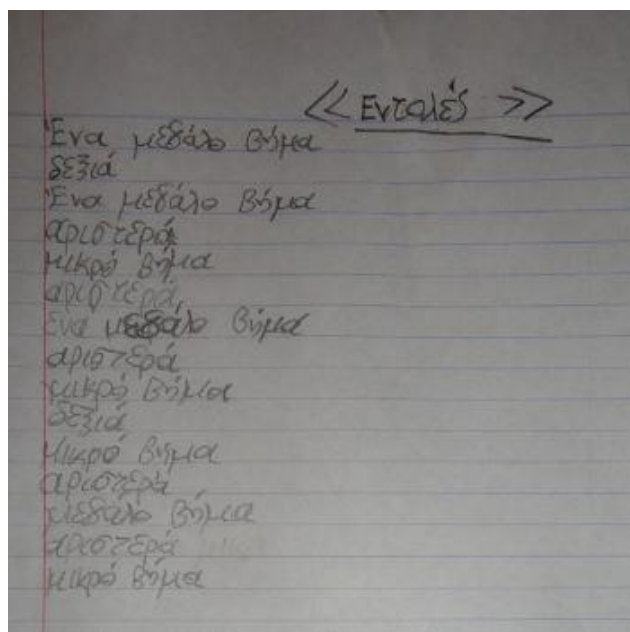 << Εντολές >>
Ένα μεγάλο βήμα
δεξιά
Ένα μεγάλο βήμα
αριστερά
μικρό βήμα
αριστερά
Ένα μεγάλο βήμα
αριστερά
μικρό βήμα
δεξιά
μικρό βήμα
αριστερά
μεγάλο βήμα
αριστερά
μικρό βήμα